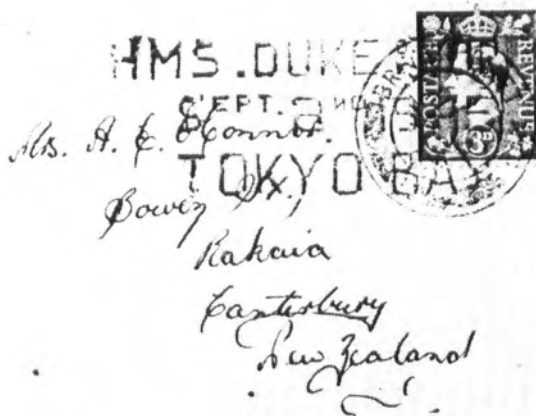 HMS. DUKE
SEPT. 2ND
TOKYO BAY
POSTAGE
REVENUE
Mrs. A. E. O'Connor.
Bowen St.,
Rakaia
Canterbury
New Zealand